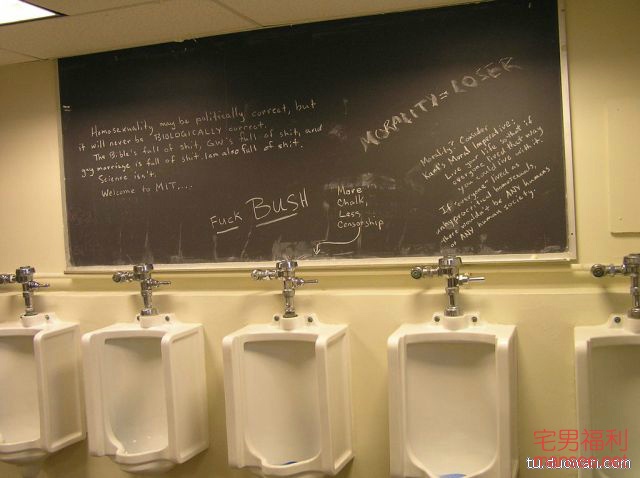 Homosexuality may be politically correct, but
it will never be BIOLOGICALLY correct.
The Bible's full of shit, GW's full of shit, and
gay marriage is full of shit. I am also full of shit.
Science isn't.
Welcome to MIT....
Fuck BUSH
More
Chalk,
Less
Censorship
MORALITY = LOSER
Morality? Consider
Kant's Moral Imperative:
Live your life so that if
everyone lived that way
you could live with it.
If "everyone" lived as
homosexuals,
there wouldn't be ANY humans
or ANY human society.
宅男福利
tu.duowan.com